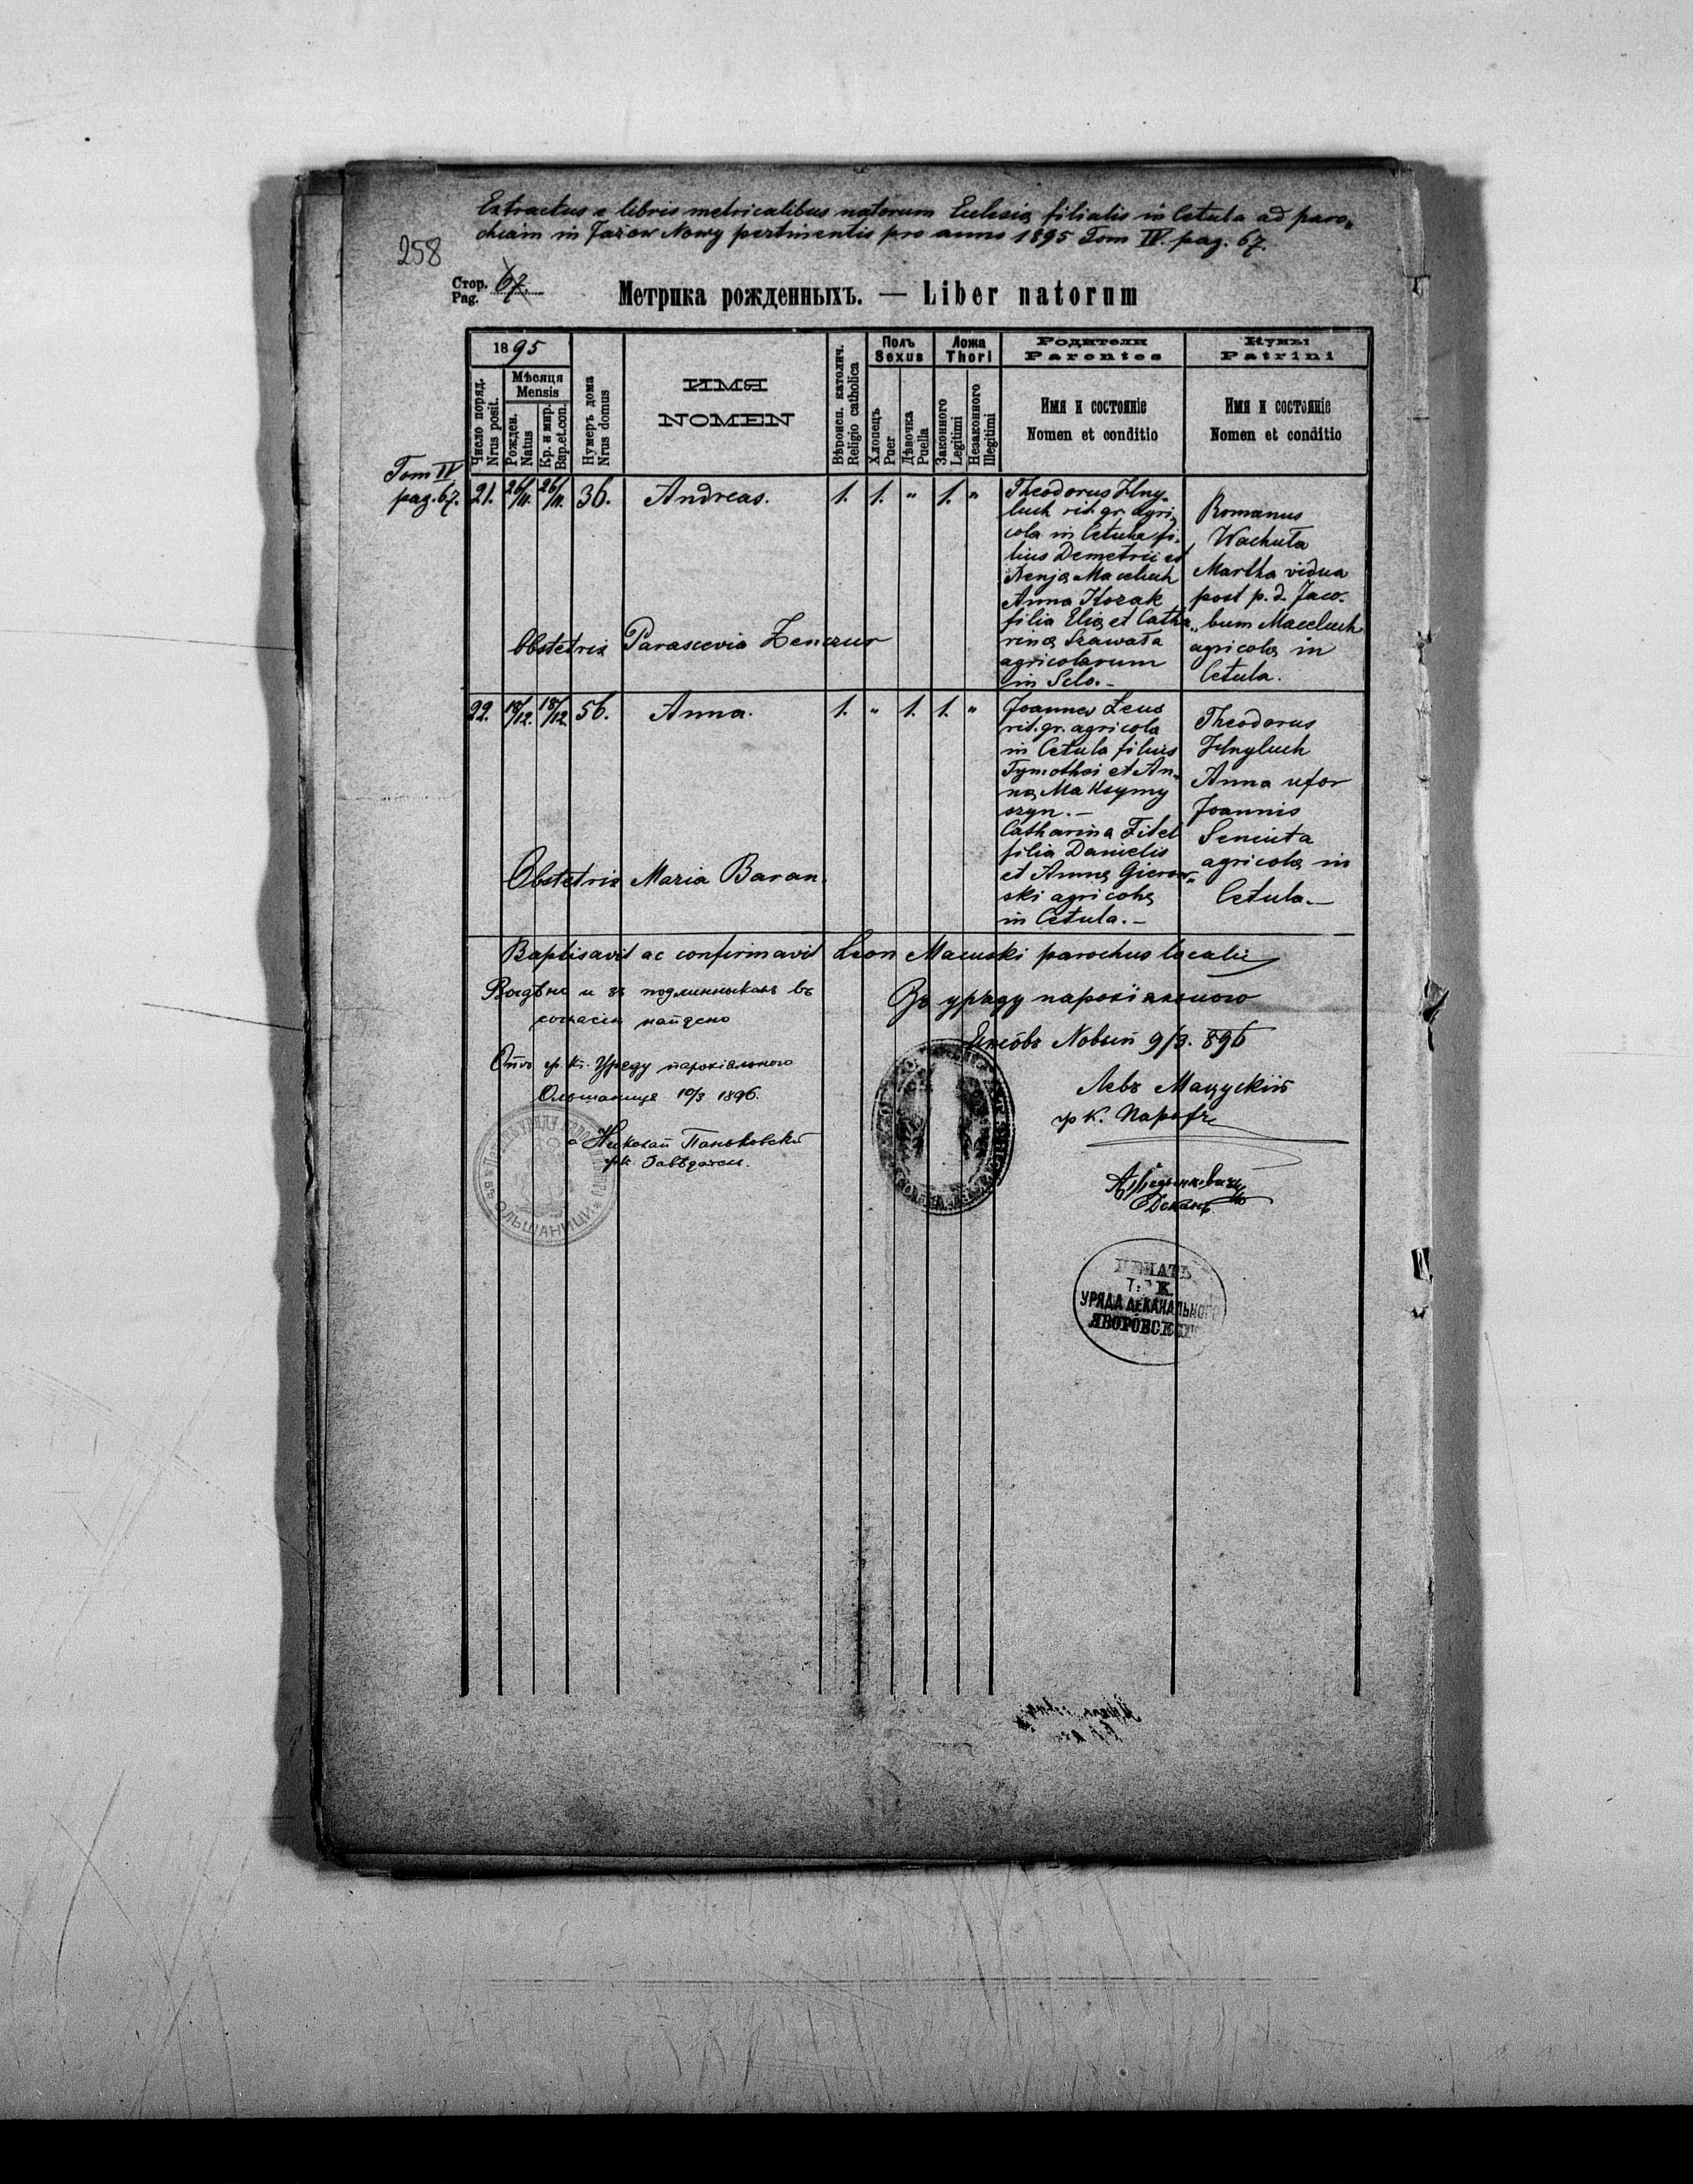 Extractus e libris metricalibus natorum Eclesiæ filialis in Cetula ad paro„
chiam in Jazow Nowy pertinentis pro anno 1895 Tom IV. pag. 67.
258
Стор. 67.
Pag.
Метрика рожденныхъ. — Liber natorum
1895
Число поряд.
Nrus posit.
Мѣсяця
Mensis
Рожден.
Natus
Кр. и мир.
Bap.et.con.
Нумеръ дома
Nrus domus
ИМЯ
NOMEN
Вѣроисп. католич.
Religio catholica
Полъ
Sexus
Хлопецъ
Puer
Дѣвочка
Puella
Ложа
Thori
Законного
Legitimi
Незаконного
Illegitimi
Родители
Parentes
Имя и состояніе
Nomen et conditio
Кумы
Patrini
Имя и состояніе
Nomen et conditio
Tom IV
pag. 67.
21. 26/11. 26/11. 36. Andreas. 1. 1. " 1. "
Theodorus Hny„
luch rit. gr. agri„
cola in Cetula fi„
lius Demetrii et
Maceluch
Anna Kozak
filia Eliæ et Catha„
rinæ Szawala
agricolarum
in Selo.-
Romanus
Wachuta
Martha vidua
post p. d. Jaco„
bum Maceluch
agricolæ in
Cetula.
Obstetrix Parascevia Zenczur
22. 18/12. 18/12. 56. Anna. 1. " 1. 1. "
Joannes Leus
rit. gr. agricola
in Cetula filius
Tymothei et An„
næ Maksymy
szyn.-
Catharina Fitel
filia Danielis
et Annæ Gierow„
ski agricolæ
in Cetula.-
Theodorus
Hnyluch
Anna uxor
Joannis
Seniuta
agricolæ in
Cetula.-
Obstetrix Maria Baran.
Baptisavit ac confirmavit Leon Macuski parochus localis
Видѣно и зъ подлинникомъ въ
согласіи найдено
Отъ гр. к. Уряду парохіяльного
Ольшаниця 10/3 1896.
Николай Паньковскій
гр.к. Завѣдатель.
Зъ уряду парохіяльного
Новый 9/3. 896
Левъ Мацускій
гр к. Парохъ
Деканъ
ОЛЬШАНИЦИ
ПЕЧАТЬ
Г. К
УРЯДА ДЕКАНАЛЬНОГО
ЯВОРОВСКОГО